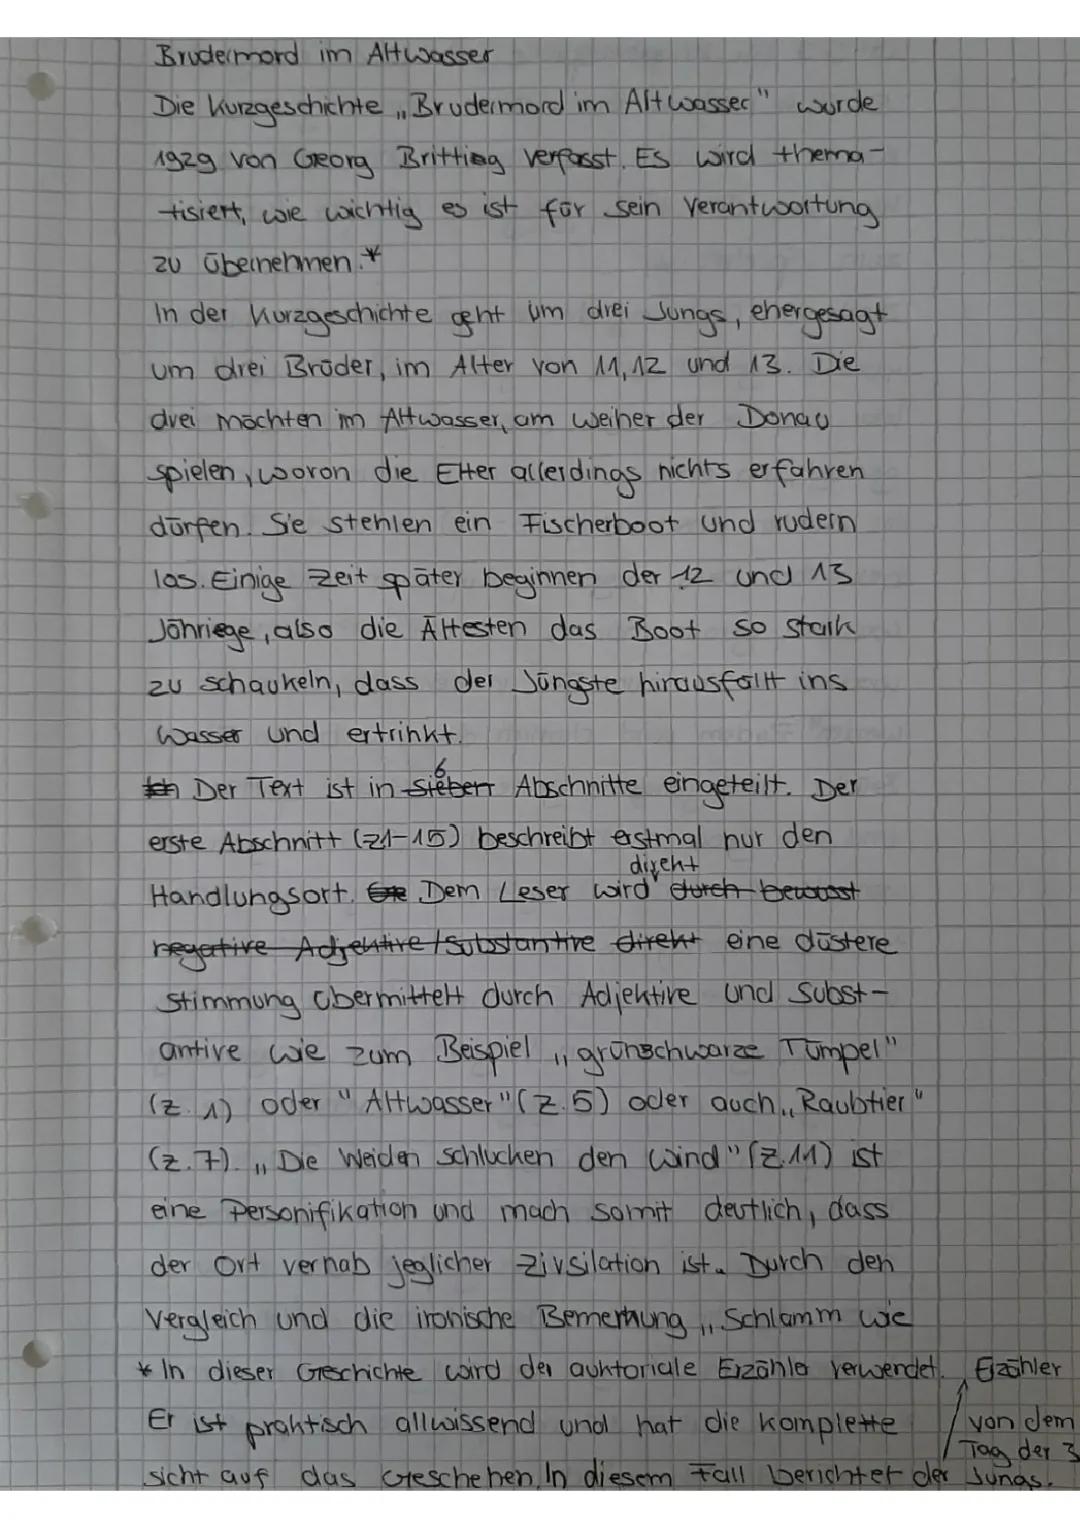 Brudermord im Altwasser
Die Kurzgeschichte „Brudermord im Altwasser" wurde
1929 von Georg Britting verfasst. Es wird thema-
tisiert, wie wichtig es ist für sein Verantwortung
zu übernehmen.*
In der Kurzgeschichte geht um drei Jungs, ehergesagt
um drei Brüder, im Alter von 11, 12 und 13. Die
drei möchten im Altwasser, am Weiher der Donau
spielen, wovon die Elter allerdings nichts erfahren
dürfen. Sie stehlen ein Fischerboot und rudern
los. Einige Zeit später beginnen der 12 und 13
Jähriege, also die Ältesten das Boot so stark
zu schaukeln, dass der Jüngste hirausfällt ins
Wasser und ertrinkt.
Der Text ist in sieben 6 Abschnitte eingeteilt. Der
erste Abschnitt (Z1-15) beschreibt erstmal nur den
Handlungsort. Dem Leser wird direkt durch bewusst
negative Adjektive/Substantive direkt eine düstere
Stimmung übermittelt durch Adjektive und Subst-
antive wie zum Beispiel „grünschwarze Tümpel"
(Z. 1) oder "Altwasser" (Z. 5) oder auch „Raubtier"
(Z. 7). „Die Weiden schlucken den Wind" (Z.11) ist
eine Personifikation und mach somit deutlich, dass
der Ort vernab jeglicher Zivsilation ist. Durch den
Vergleich und die ironische Bemerkung „Schlamm wie
* In dieser Geschichte wird der auktoriale Erzähler verwendet.
Er ist praktisch allwissend und hat die komplette
sicht auf das Geschehen. In diesem Fall berichtet der
Erzähler
von dem
Tag der 3
Jungs.